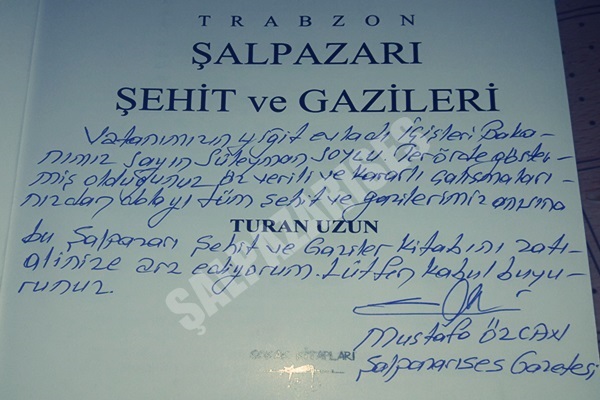 TRABZON
ŞALPAZARI
ŞEHİT ve GAZİLERİ
Vatanımızın yiğit evladı İçişleri Baka-
nımız Sayın Süleyman SOYLU, Terörde göster-
miş olduğunuz öz verili ve kararlı çalışmaları-
nızdan dolayı tüm şehit ve gazilerimiz anısına
TURAN UZUN
bu Şalpazarı Şehit ve Gaziler kitabını zatı-
alinize arz ediyorum. Lütfen kabul buyu-
runuz.
Mustafa ÖZCAN
Şalpazarıses Gazetesi
KİTAPLARI
ŞALPAZARISES